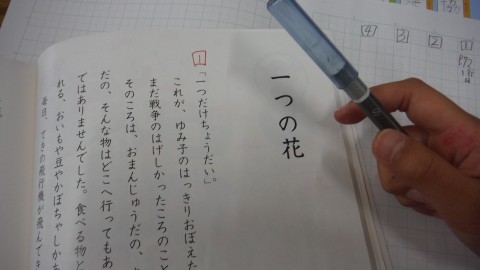 一つの花
1
「一つだけちょうだい。」
これが、ゆみ子のはっきりおぼえた
まだ戦争のはげしかったころのこと
そのころは、おまんじゅうだの、
だの、そんな物はどこへ行ってもあ
ではありませんでした。食べる物と
れる、おいもや豆やかぼちゃしかあ
毎日、てきの飛行機が飛んでき
1
2
3
4